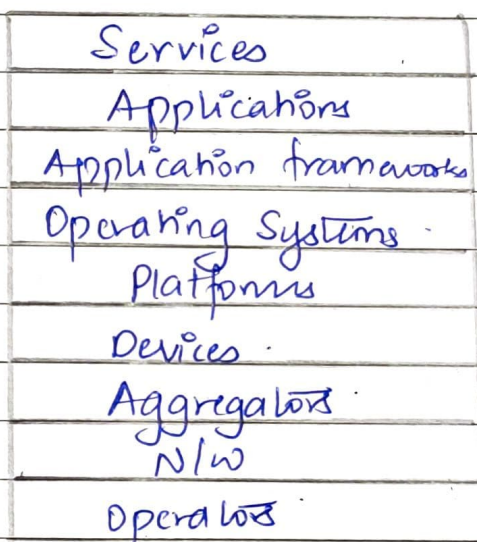 Services
Applications
Application frameworks
Operating Systems
Platforms
Devices
Aggregators
N/W
Operators